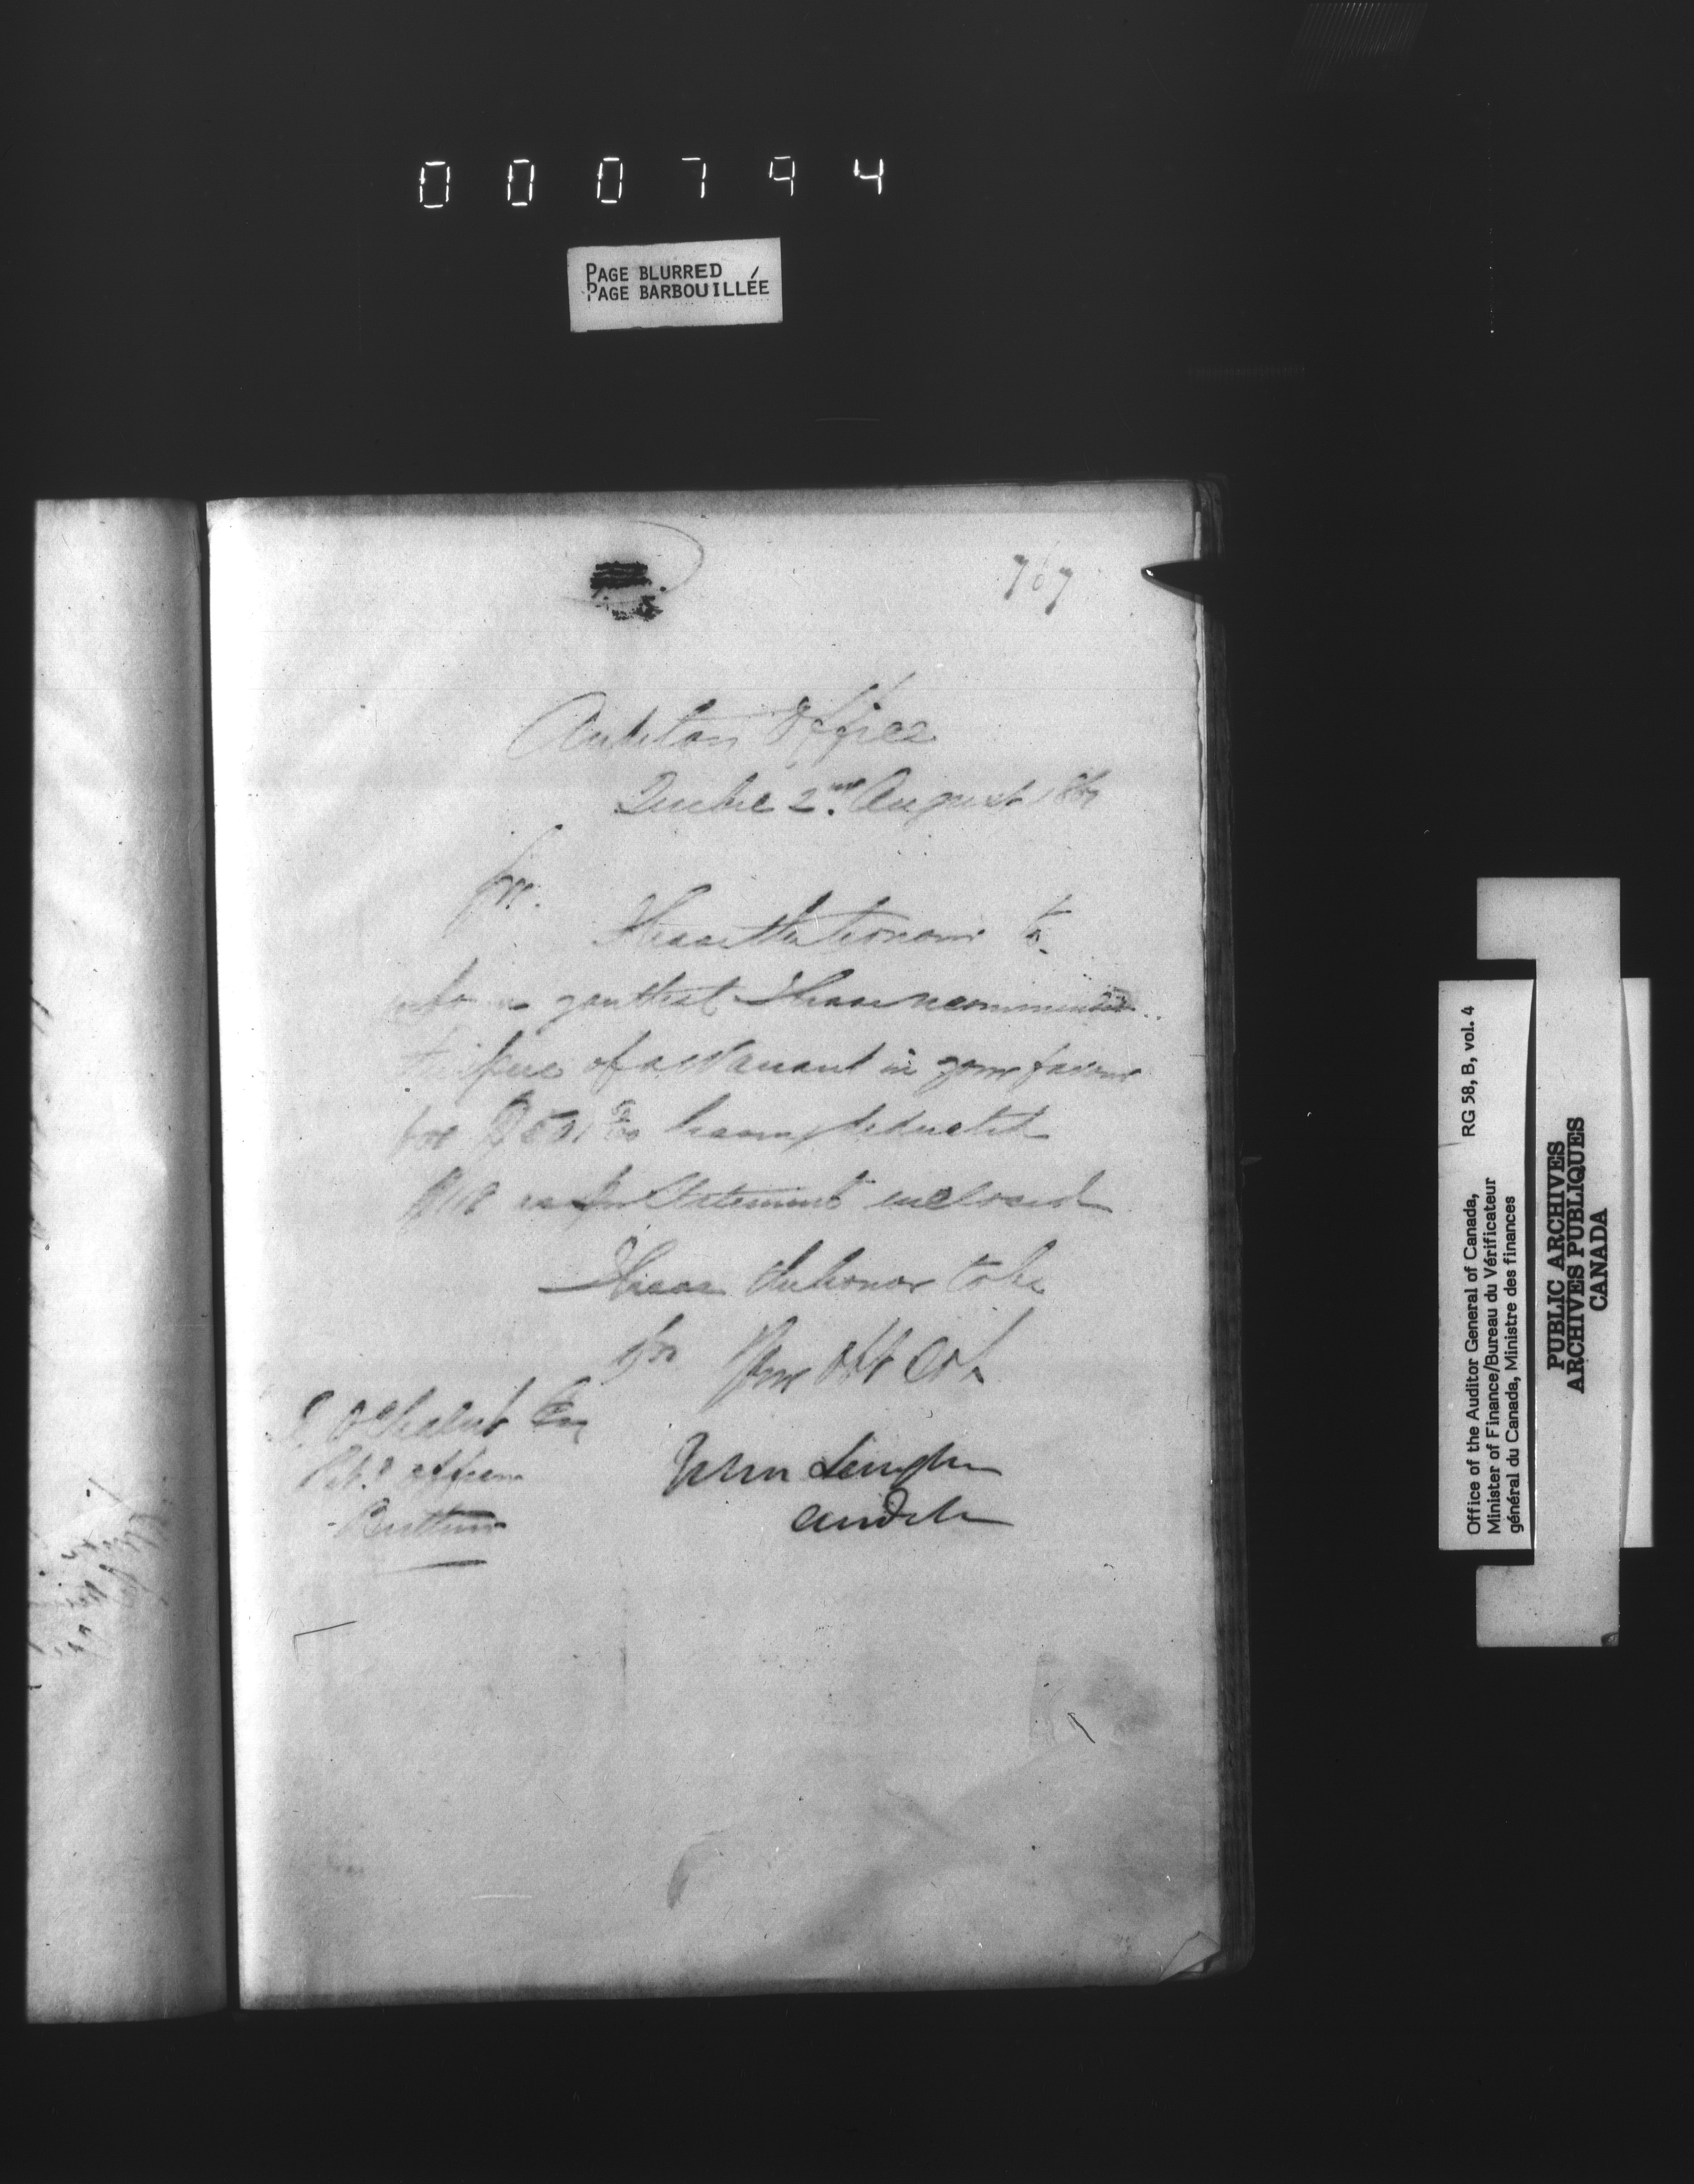 000794
PAGE BLURRED
PAGE BARBOUILLÉE
767
Auditors Office
Quebec 2nd August 186
Sir.
I have the honour to
inform you that I have recommended
the issue of a Warrant in your favour
for having deducted
as per Statement enclosed
I have the honor to be
Sir Your Obt
Esq
John Langton
Auditor
Office of the Auditor General of Canada,
Minister of Finance/Bureau du Vérificateur
général du Canada, Ministre des finances
RG 58, B, vol. 4
PUBLIC ARCHIVES
ARCHIVES PUBLIQUES
CANADA